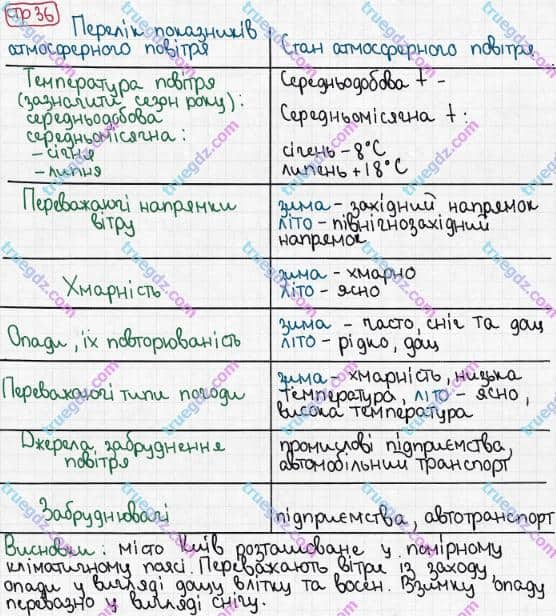 ТР 36
Перелік показників
атмосферного повітря
Стан атмосферного повітря
Температура повітря
(зазначити сезон року):
середньодобова
середньомісячна:
– січня
– липня
Середньодобова t –
Середньомісячна t:
січень –8°С
липень +18°С
Переважаючі напрямки
вітру
зима – західний напрямок
літо – північнозахідний
напрямок
Хмарність
зима – хмарно
літо – ясно
Опади, їх повторюваність
зима – часто, сніг та дощ
літо – рідко, дощ
Переважаючі типи погоди
зима – хмарність, низька
температура, літо – ясно,
висока температура
Джерела забруднення
повітря
промислові підприємства,
автомобільний транспорт
Забруднювачі
підприємства, автотранспорт
Висновки: місто Київ розташоване у помірному
кліматичному поясі. Переважають вітри із заходу,
опади у вигляді дощу влітку та восен. Взимку опади
перевозно у вигляді снігу.
truegdz.com